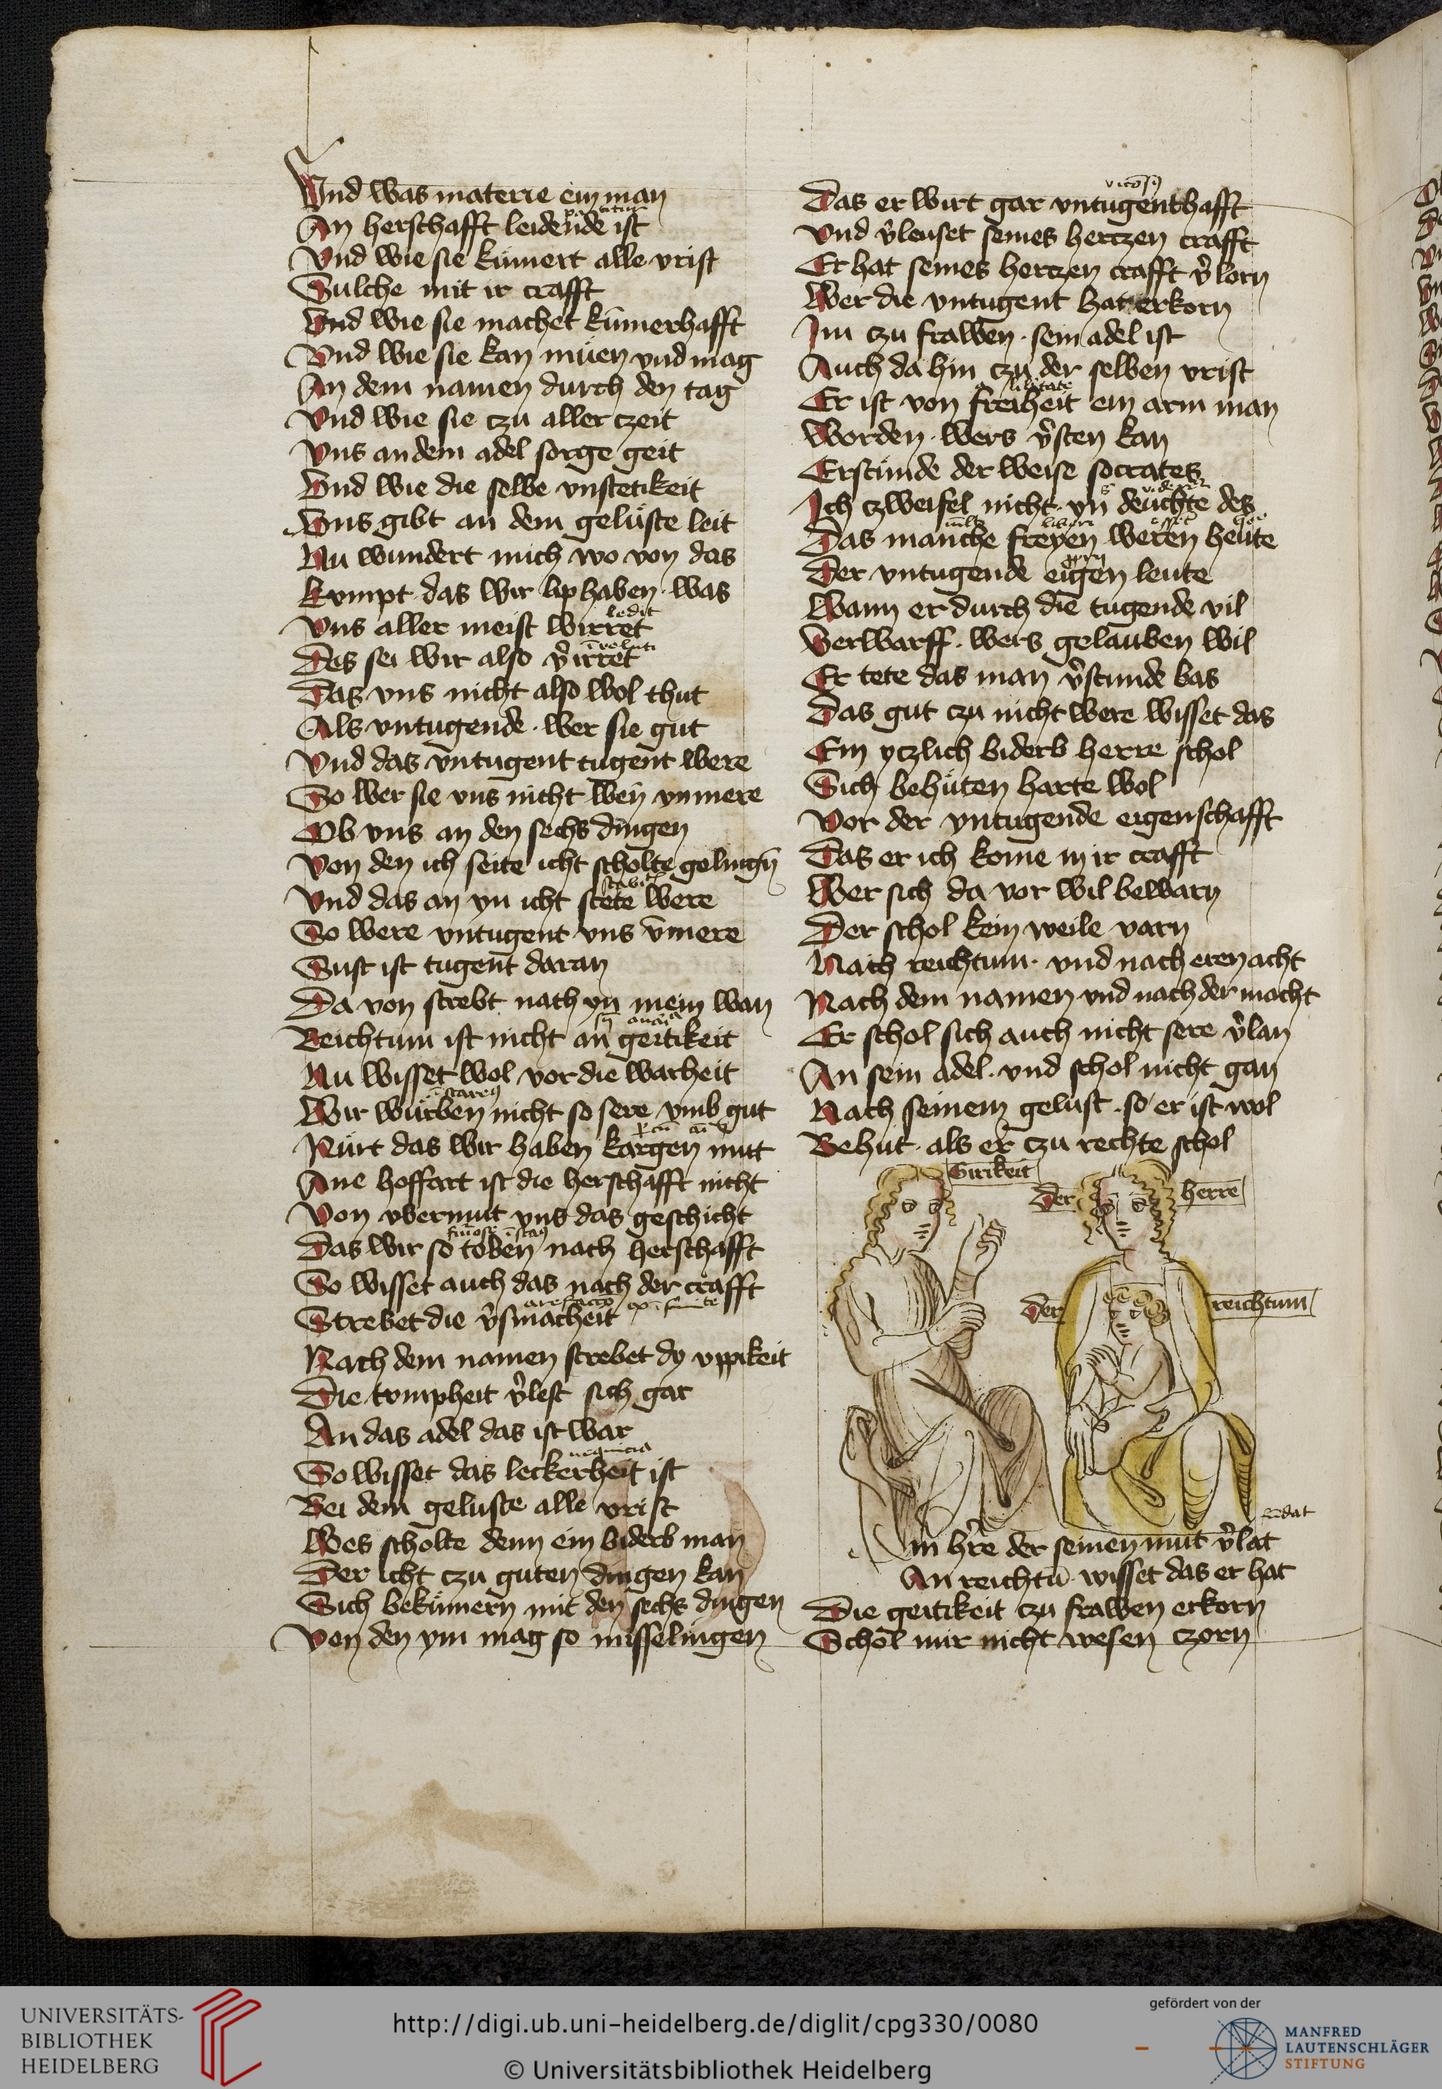 Vnd was materie ein man
An herschafft leidende ist
Vnd wie sie kümert alle vrist
Sulche mit ir crafft
Vnd wie sie machet kümerhafft
Vnd wie sie kan müen vnd mag
An dem namen durch den tag
Vnd wie sie czu aller czeit
Vns an dem adel sorge geit
Vnd wie die selbe vnstetikeit
Vns gibt an dem geluste leit
Nu wundert mich wo von das
Kvmpt · das wir lip haben · was
ledit
Vns aller meist wirret
Des sei wir also v̂irret
Das vns nicht also wol thut
Als vntugende · wer sie gut
Vnd das vntugent tugent were
So wer sie vns nicht wen vnmere
Ob vns an den sechs dingen
Von den ich seite icht scholte gelingn̄
Vnd das an yn icht stete were
So were vntugent vns v̄mere
Sust ist tugent daran
Da von strebt nach yn mein wan
Reichtum ist nicht an geitikeit
Nu wisset wol vor die warheit
Wir würben nicht so sere vmb gut
Nürt das wir haben kargen mut
Ane hoffart ist die herschafft nicht
Von vbermut vns das geschicht
Das wir so toben nach herschafft
So wisset auch das nach der crafft
Strebet die v̂smacheit
Nach dem namen strebet dy vppikeit
Die tvmpheit v̂lest sich gar
An das adel das ist war
nequicia
So wisset das leckerheit ist
Bei dem geluste alle vrist
Wes scholte denn ein biderb man
Der icht czu guten dingen kan
Sich bekümern mit den sechs dingen
Von den ym mag so misselingen
Das er wirt gar vntugenthafft
Vnd v̂leuset seines hertzen crafft
Er hat seines hertzen crafft v̂lorn
Wer die vntugent hat erkorn
Im czu frawen · sein adel ist
Auch da hin czu der selben vrist
Er ist von freiheit ein arm man
Worden · wers v̂sten kan
Erstünde der weise socrates
Ich czweifel nicht · yn deuchte des
Das manche freyen weren heute
Der vntugende eigen leute
Wann er durch die tugende vil
Verwarff · wers gelauben wil
Er tete das man v̂stunde bas
Das gut czu nicht were wisset das
Ein yczlich biderb herre schol
Sich behüten harte wol
Vor der vntugende eigenschafft
Das er ich kome in ir crafft
Wer sich da vor wil bewarn
Der schol kein weile varn
Nach reichtum · vnd nach eren acht
Nach dem namen vnd nach der macht
Er schol sich auch nicht sere v̂lan
An sein adel · vnd schol nicht gan
Nach seinem gelust · so er ist wol
Behut · als er czu rechte schol
Girikeit
Der herre
Der reichtum
in hr̂e der seinen mut v̂lat
An reichtū · wisset das er hat
Die geitikeit czu frawen erkorn
Schol mir nicht wesen czorn
UNIVERSITÄTS-
BIBLIOTHEK
HEIDELBERG
http://digi.ub.uni-heidelberg.de/diglit/cpg330/0080
© Universitätsbibliothek Heidelberg
gefördert von der
MANFRED
LAUTENSCHLÄGER
STIFTUNG